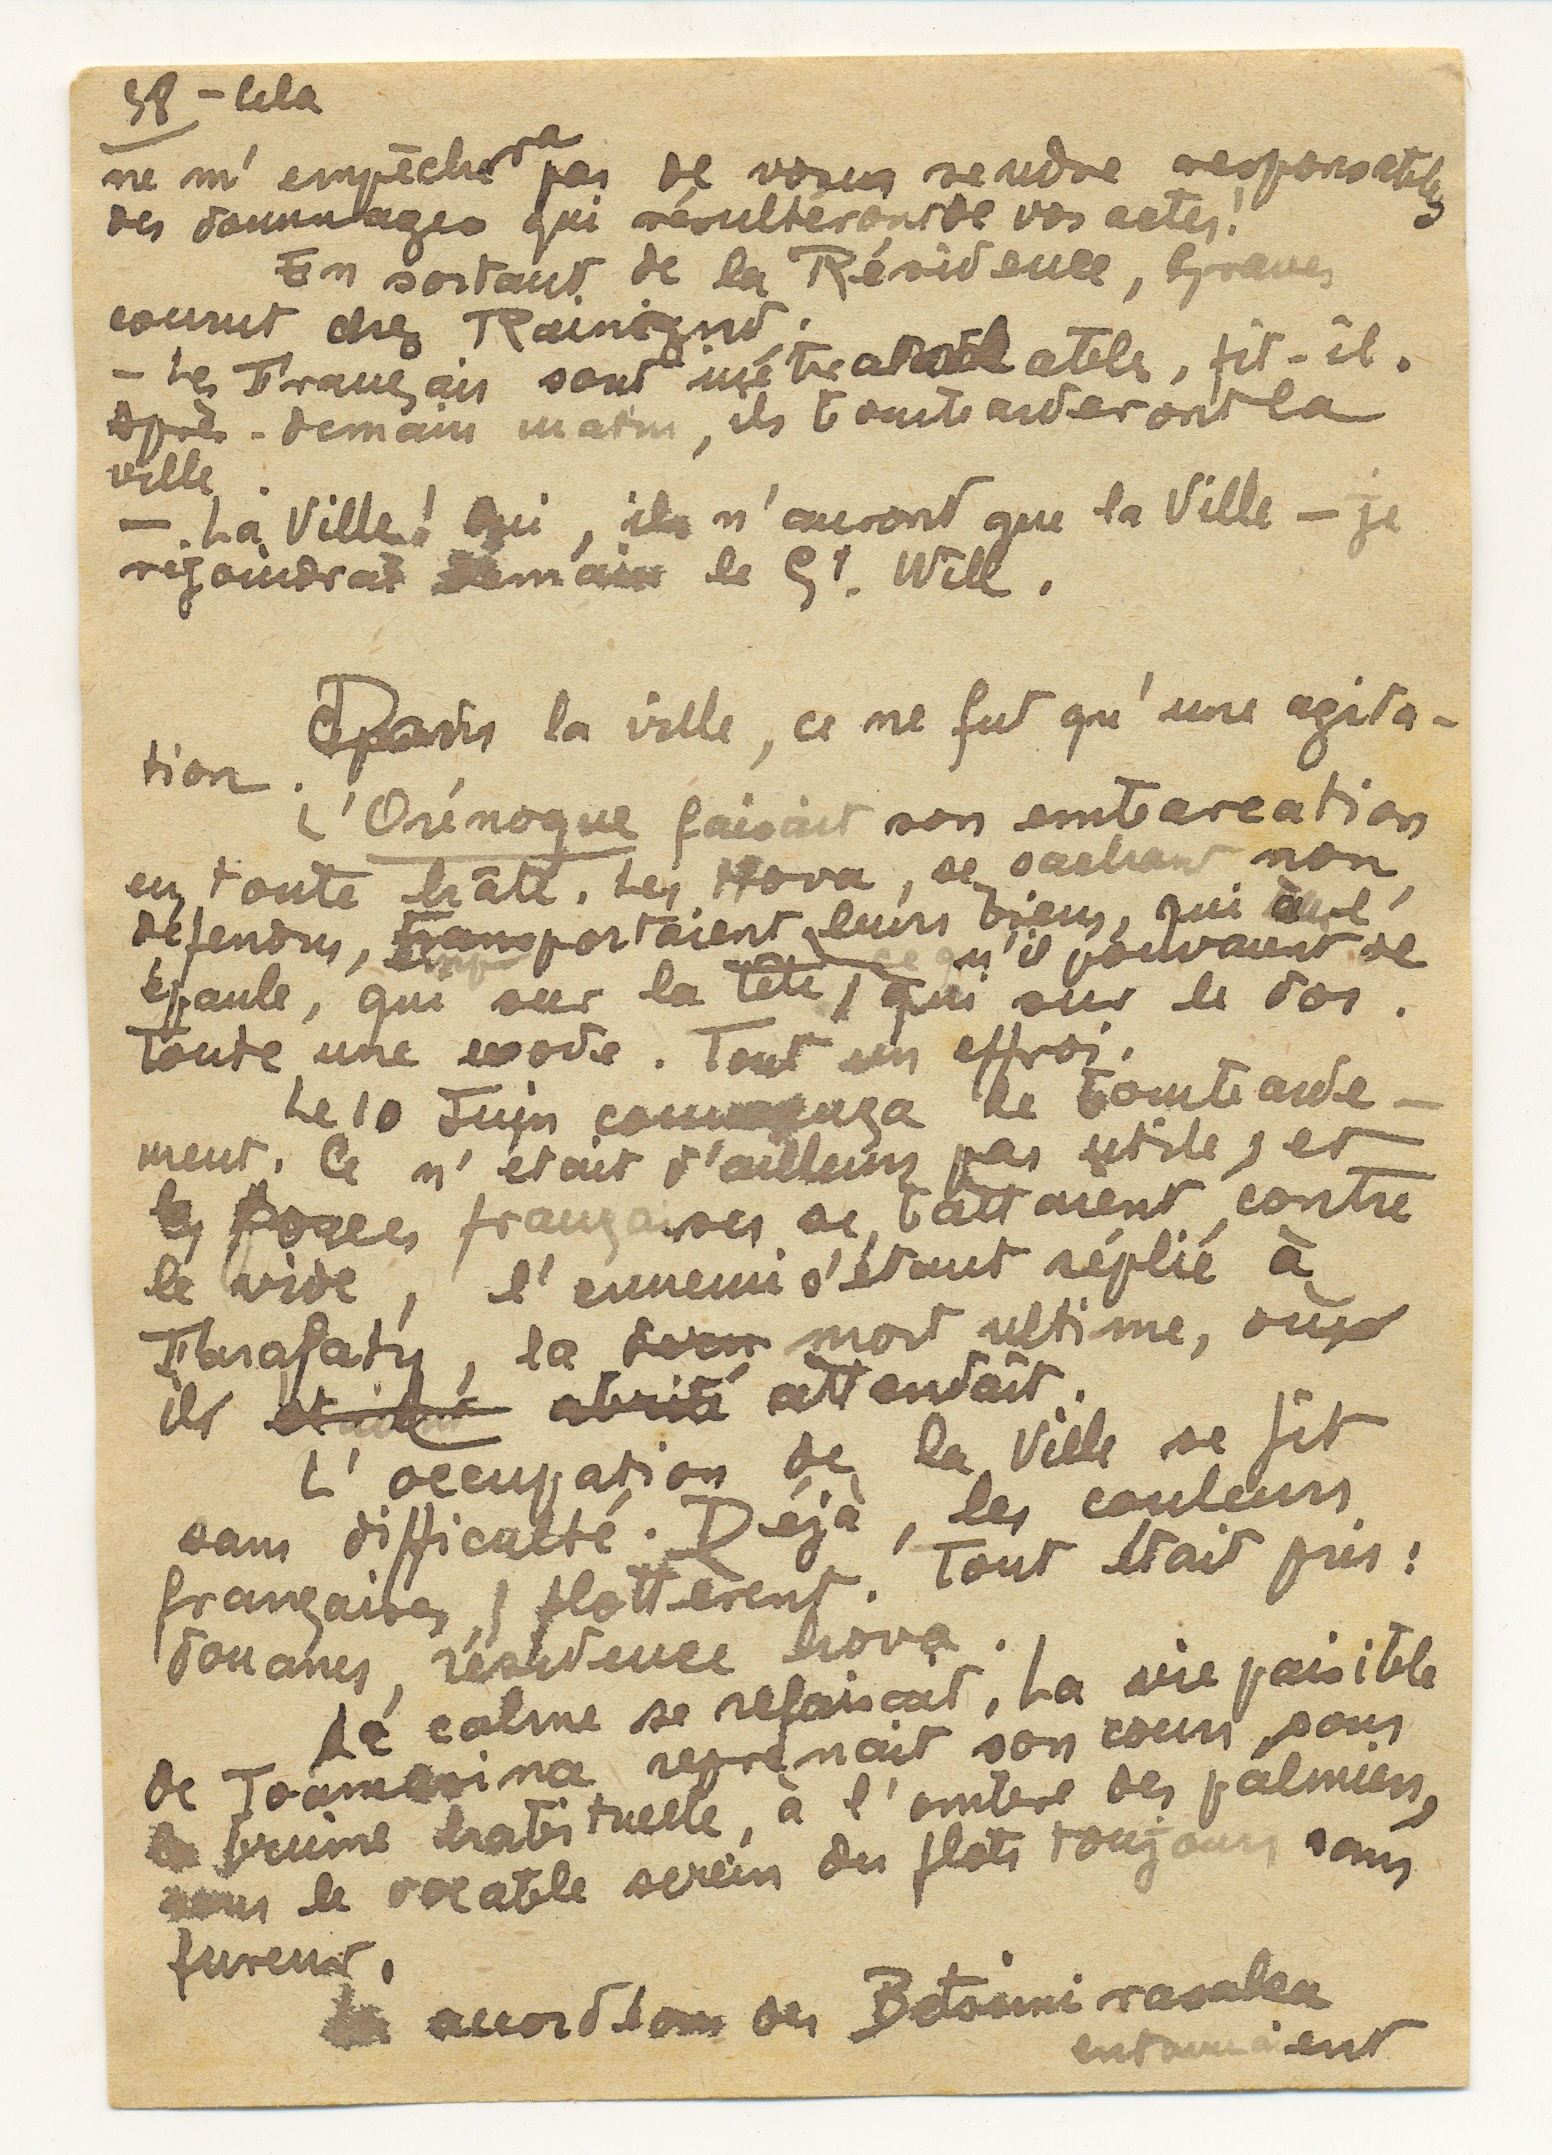 38 - lila
ne m'empêchera pas de vous rendre responsables
des dommages qui résulteront de vos actes!
En sortant de la Résidence, Graves
courut chez
- Les Français sont, fit-il.
Après-demain matin, ils bombarderont la
ville.
- La Ville! Oui, ils n'auront que la Ville - je
rejoindrai demain le Gl. Will.
Dans la ville, ce ne fut qu'une agita-
tion.
L'Orénoque faisait son embarcation
en toute hâte. Les Hova, se sachant non
défendus, emportaient leurs biens, ce qu'il pouvaient de
qui sur l'
épaule, qui sur la tête, qui sur le dos.
Toute une exode. Tout un effroi.
Le 10 Juin commença le bombarde-
ment. Ce n'était d'ailleurs pas utile, et
les forces françaises se battaient contre
le vide, l'ennemi s'étant réplié à
Farafaty, la mort ultime, où
ils attendait.
L'occupation de la Ville se fit
sans difficulté. Déjà, les couleurs
françaises, flottèrent. Tout était pris:
douanes, résidence hova.
Le calme se refaisait. La vie paisible
de Toamasina reprenait son cours sous
la brume habituelle, à l'ombre des palmiers,
sous le vocable serein des flots toujours sans
fureur.
accordéons des Betsimirasaka
entamaient